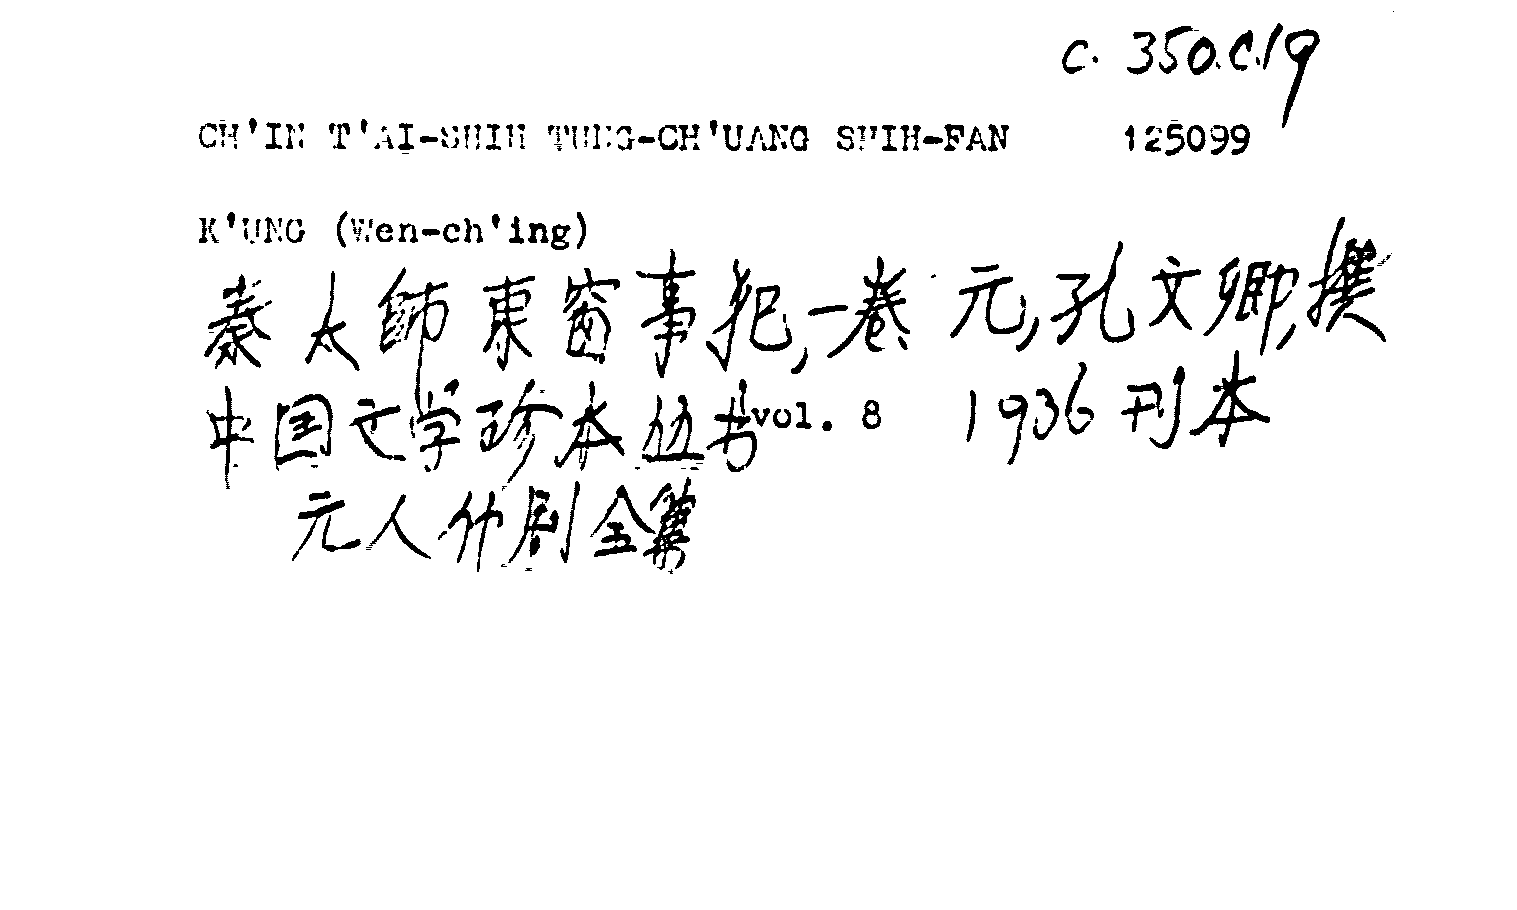 C. 350.C.19
CH'IN T'AI-SHIH TUNG-CH'UANG SHIH-FAN 125099
K'UNG (Wen-ch'ing)
秦太師東窗事犯,一卷 元,孔文卿,撰
中国文学珍本丛书 vol. 8 1936 刊本
元人什剧全集